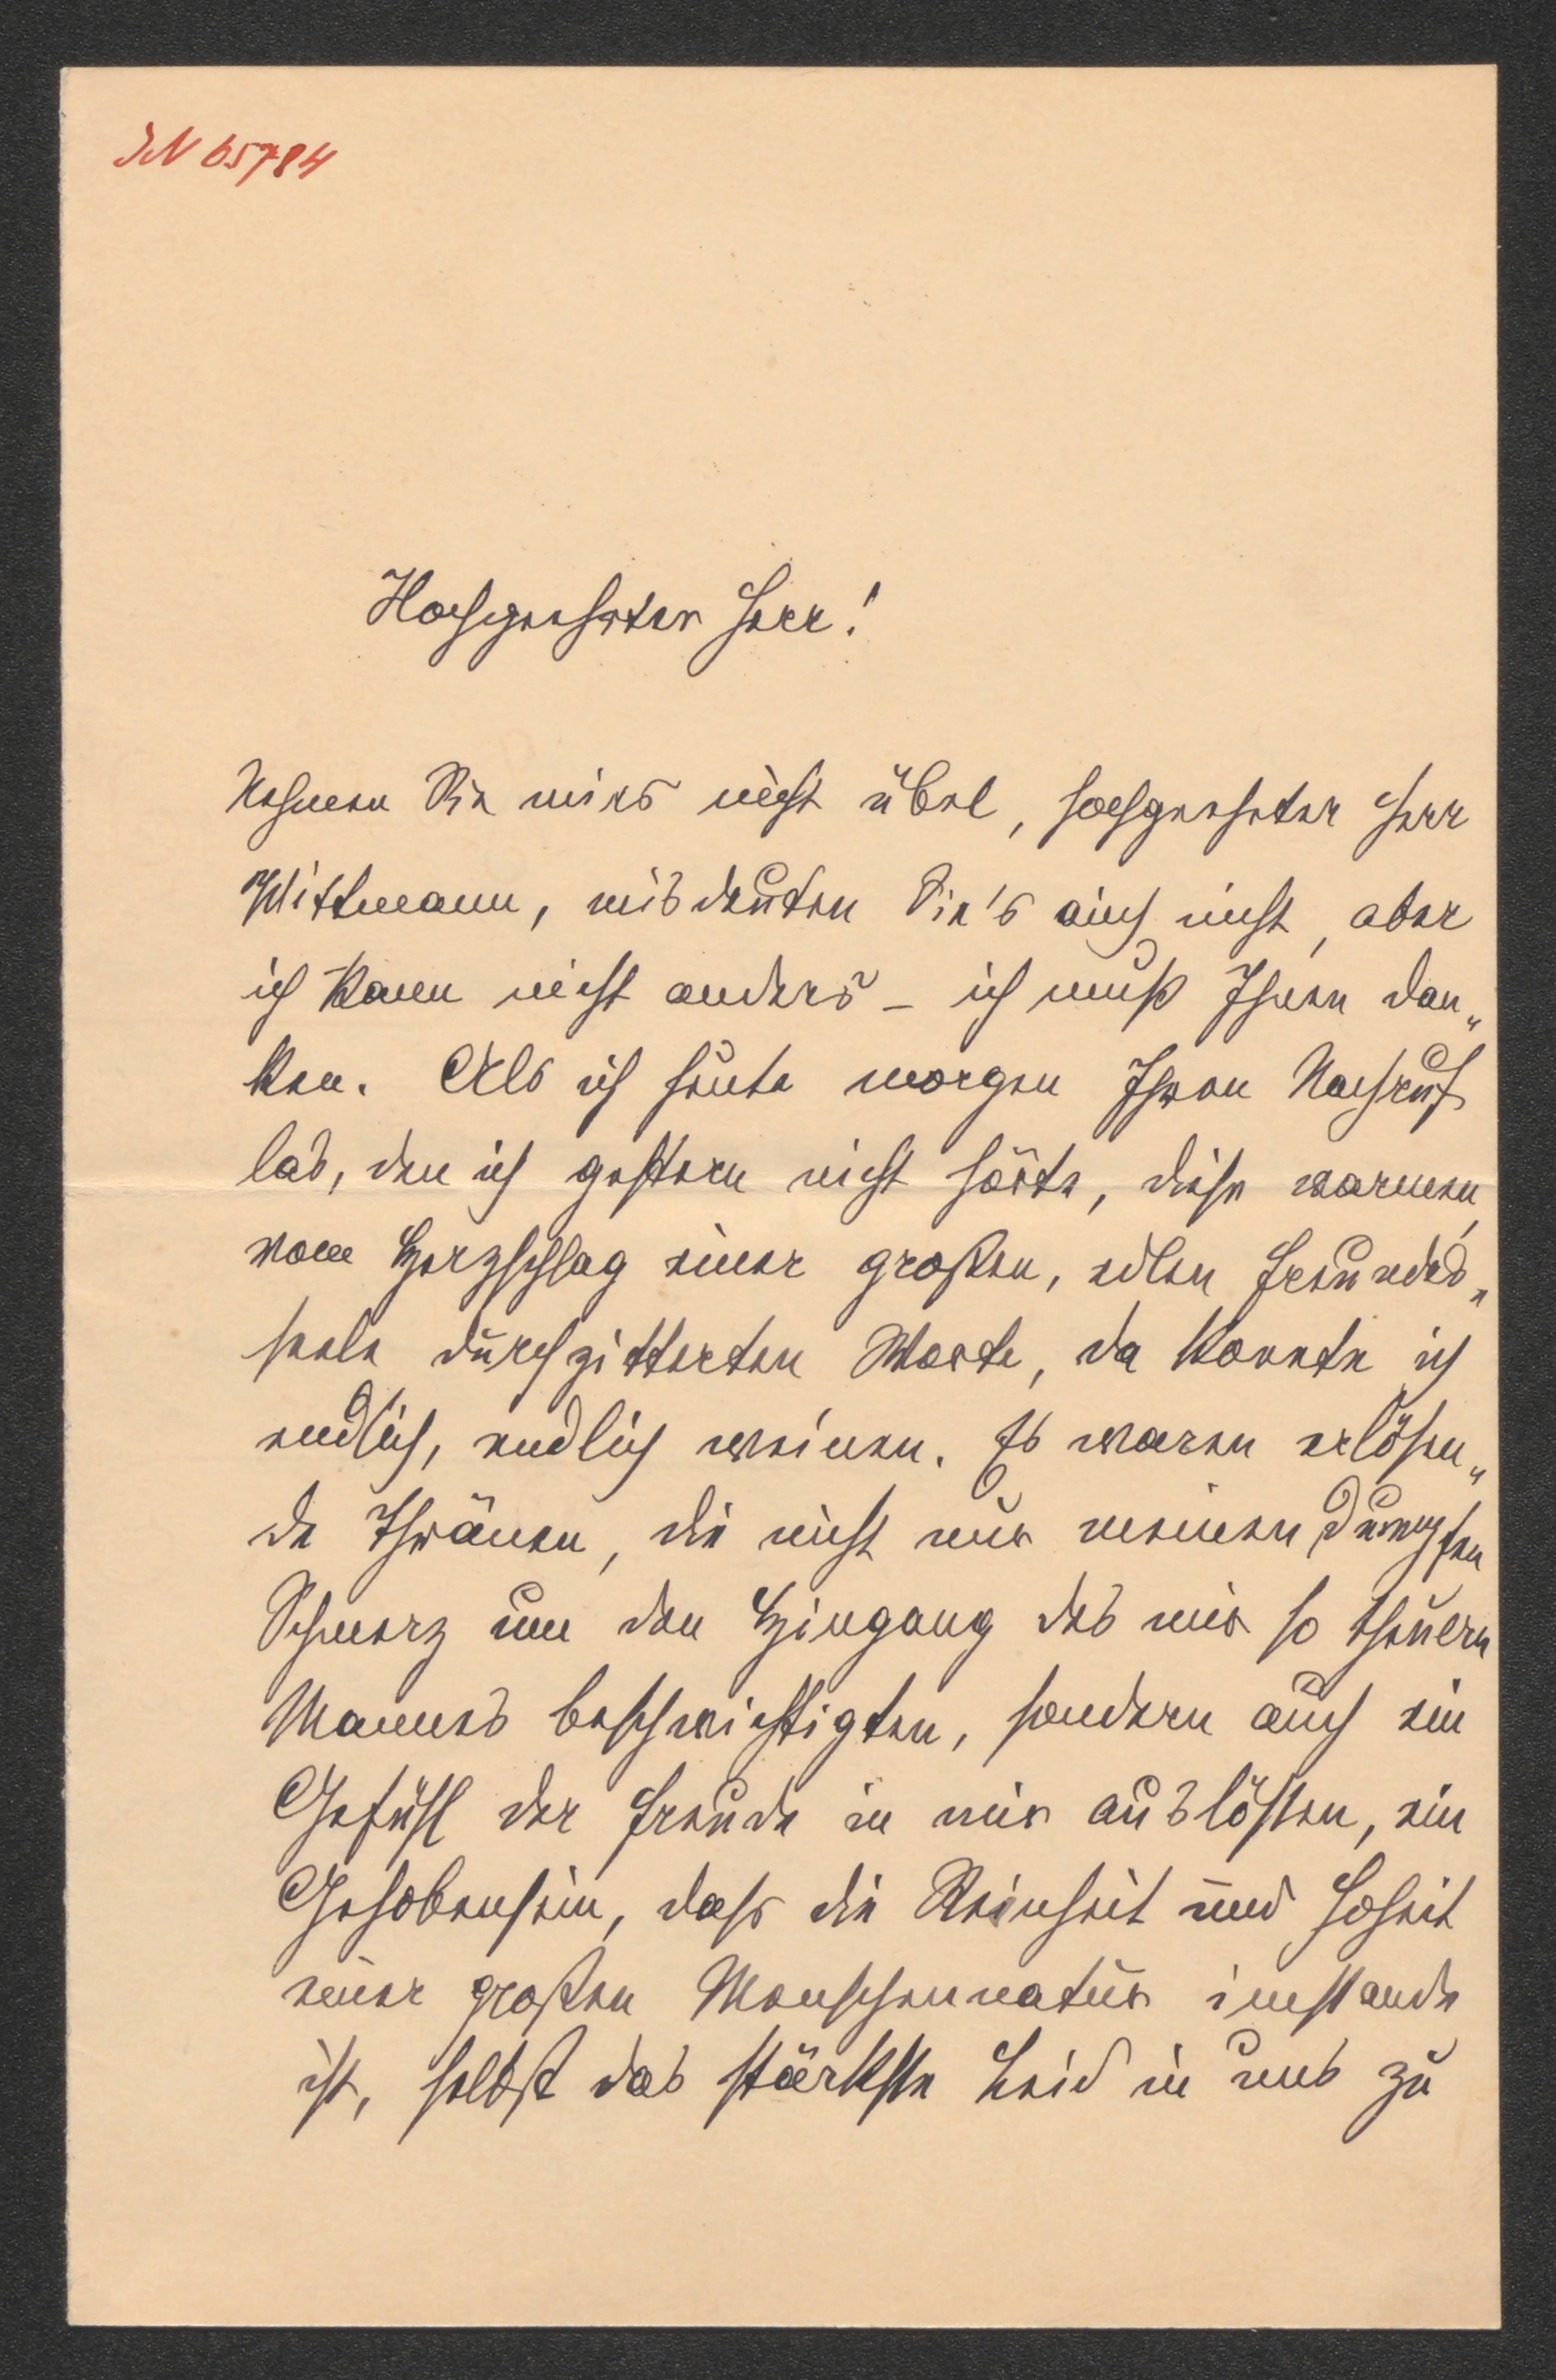 JN 65784
Hochgeehrter Herr!
Nehmen Sie mirs nicht übel, hochgeehrter Herr
Wittmann, misdeuten Sie's auch nicht, aber
ich kann nicht anders – ich muß Ihnen dan„
ken. Als ich heute morgen Ihren Nachruf
las, den ich gestern nicht hörte, diese warmen,
vom Herzschlag einer großen, edlen Freundes„
seele durchzitterten Worte, da konnte ich
endlich, endlich weinen. Es waren erlösen„
de Thränen, die nicht nur meinen dumpfen
Schmerz um den Hingang des mir so theuern
Mannes beschwichtigten, sondern auch ein
Gefühl der Freude in mir auslösten, ein
Gehobensein, dass die Reinheit und Hoheit
einer großen Menschennatur imstande
ist, selbst das stärkste Leid in uns zu